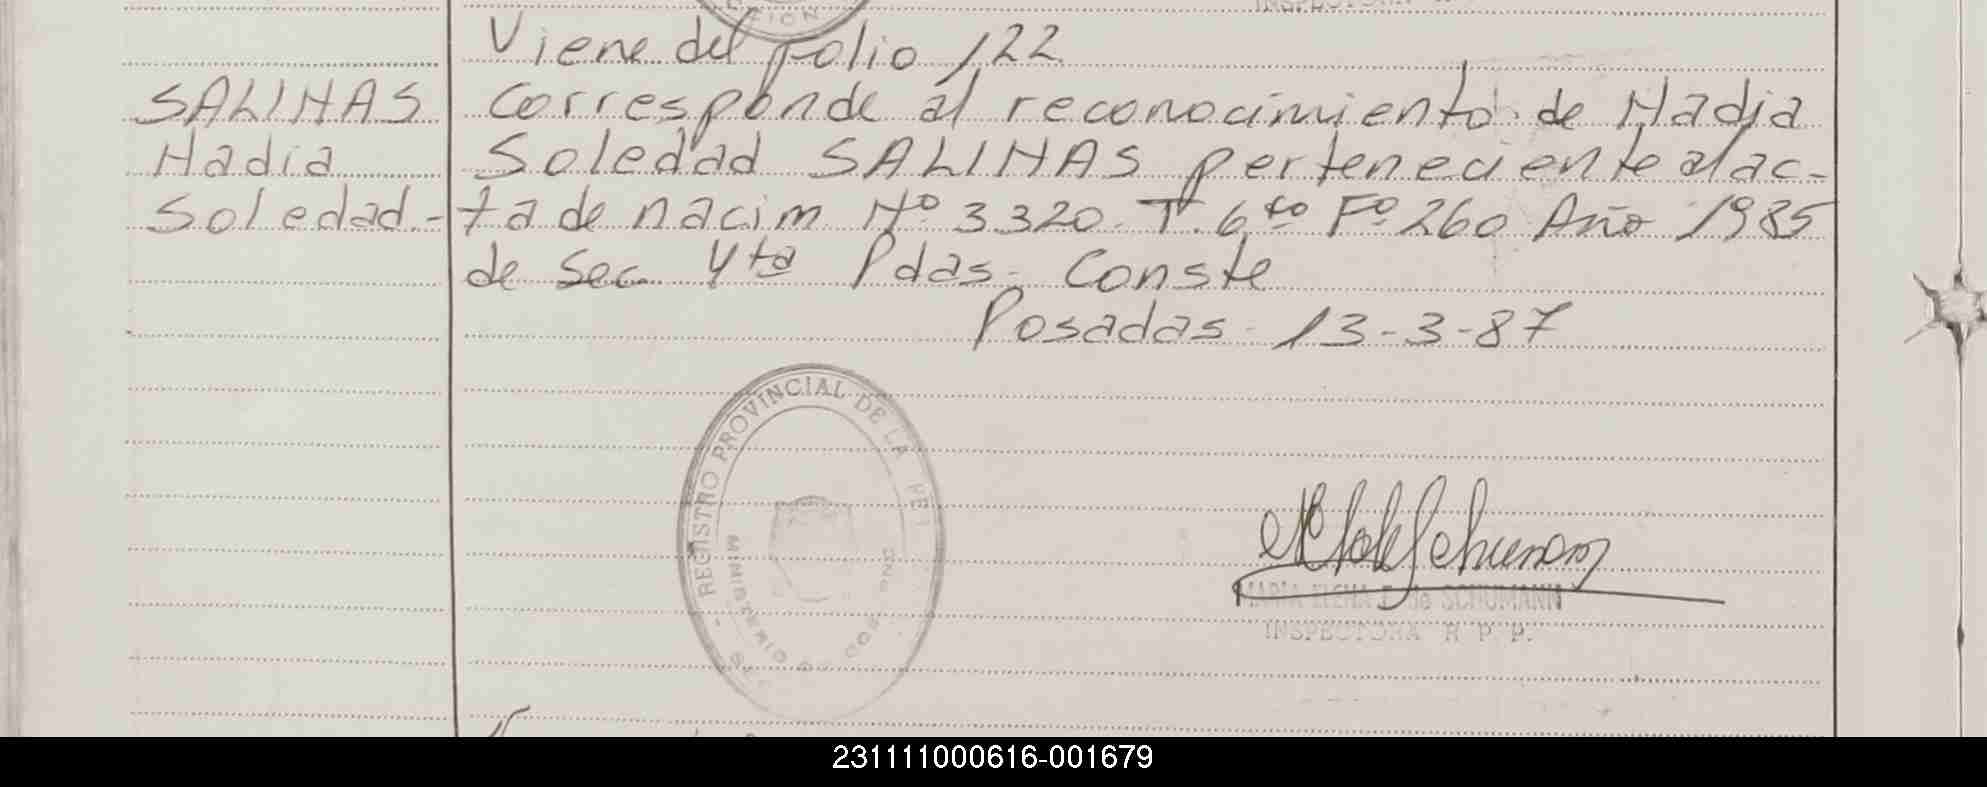 CCION
Viene del folio 122
SALINAS
Nadia
Soledad.-
Corresponde al reconocimiento de Nadia
Soledad SALINAS perteneciente al ac-
ta de nacim Nº 3320. T. 6to Fº 260 Año 1985
de Sec 4ta Pdas. Conste
Posadas 13-3-87
REGISTRO PROVINCIAL DE LA
MINISTERIO DE GOB
MARIA ELENA de SCHUMANN
INSPECTORA R P P.
231111000616-001679